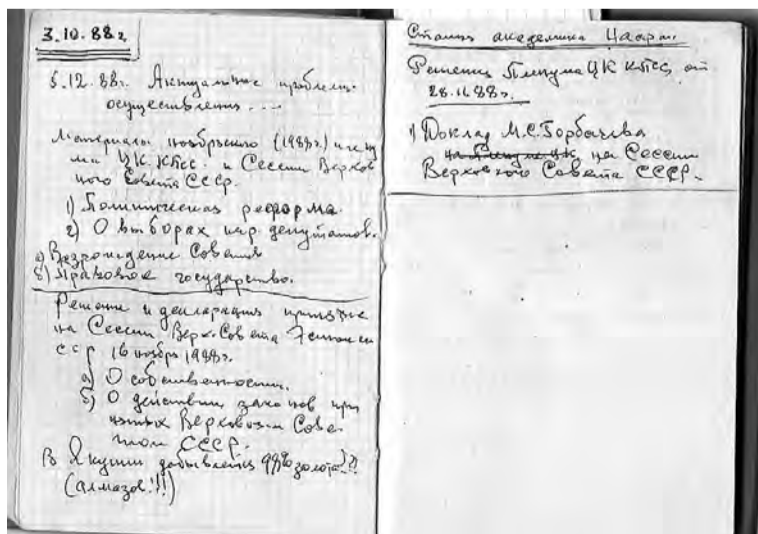 3.10.88г.
5.12.88г. Актуальные проблемы
осуществления ...
Материалы ноябрьского (1988г.) плену
ма ЦК КПСС и Сессии Верхов
ного Совета СССР.
1) Политическая реформа.
2) О выборах нар. депутатов.
а) Возрождение Советов
б) Правовое государство.
Решение и декларация принятые
на Сессии Верх. Совета Эстонской
ССР 16 ноябр 1988г.
а) О собственности.
б) О действии законов при
нятых Верховным Сове-
том СССР.
В Якутии добывается 99% золота?!
(алмазов!!!)
Статья академика
Решения Пленума ЦК КПСС от
28.11.88г.
1) Доклад М.С. Горбачева
на Пленуме ЦК на Сессии
Верховного Совета СССР.